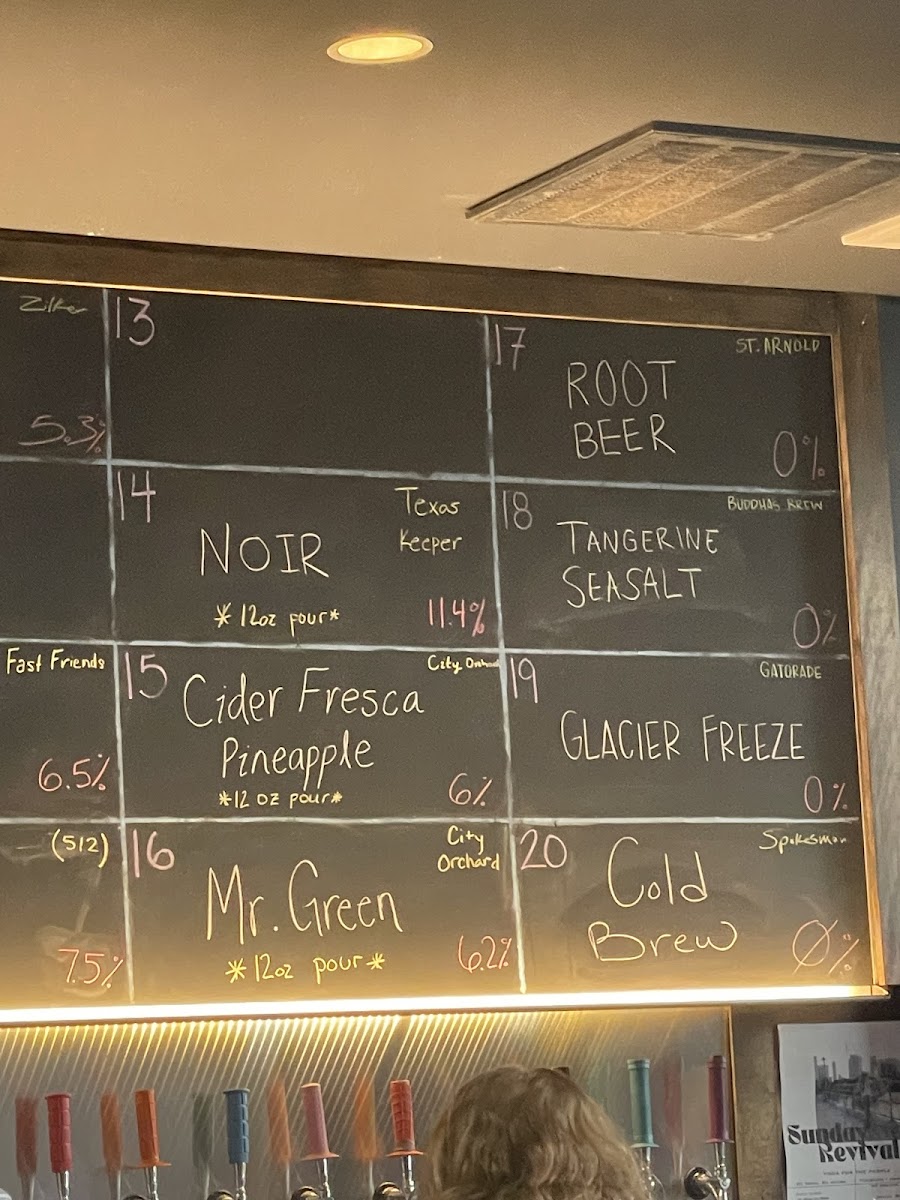 Zilker
5.3%
Fast Friends
6.5%
(512)
7.5%
13
14
Texas
Keeper
NOIR
*12oz pour*
11.4%
15
City Orchard
Cider Fresca
Pineapple
*12 oz pour*
6%
16
City
Orchard
Mr. Green
*12oz pour*
6.2%
17
ST. ARNOLD
ROOT
BEER
0%
18
BUDDHAS BREW
TANGERINE
SEASALT
0%
19
GATORADE
GLACIER FREEZE
0%
20
Spokesman
Cold
Brew
0%
Sunday
Revival
YOGA FOR THE PEOPLE